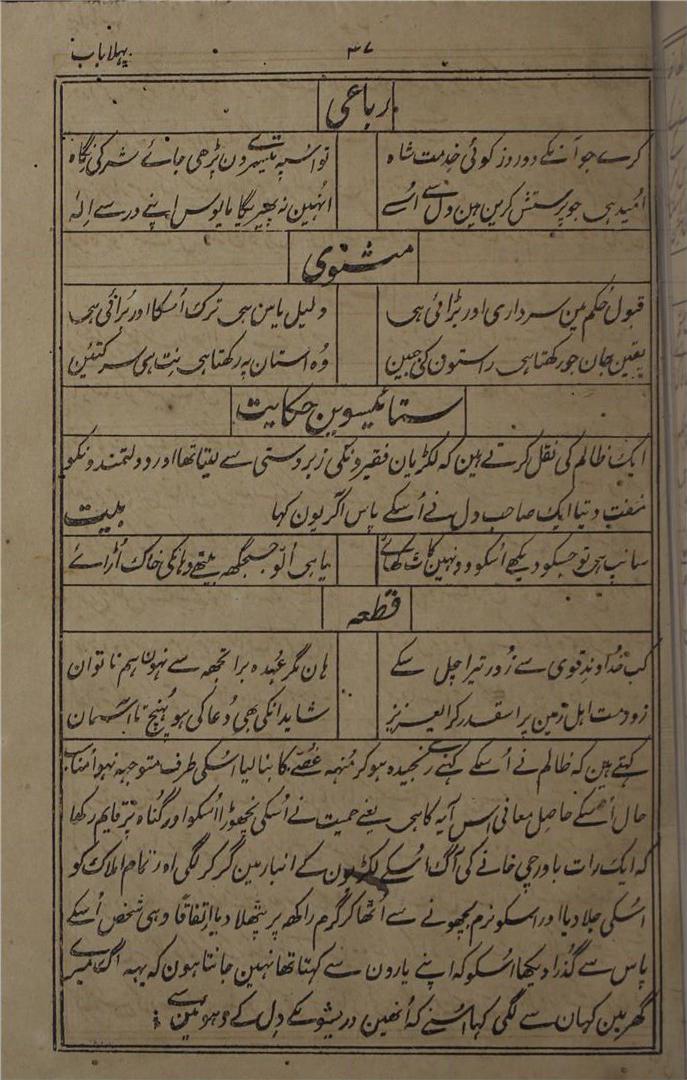 پہلا باب ۳۷
رباعی
کرے جو آنکے دو روز کوئی خدمت شاہ تو اُسپہ تیسرے دن پڑھی جائے شر کی نگاہ
اُمید ہی جو پرستش کرین ہین دل سے اُسے انہین نہ پھیریگا مایوس اپنے در سے اِلہ
مثنوی
قبول حُکم مین سرداری اور بڑائی ہی دلیل یاس ہی ترک اُسکا اور بُرائی ہی
یقین جان جو رکھتا ہی راستون کی جبین وُہ استان پہ رکھتا ہی نِت ہی سر کتئین
ستائیسوین حکایت
ایک ظالم کی نقل کرتے ہین کہ لکڑیان فقیرونکی زبردستی سے لیتا تھا اور دولتمندونکو
مُفت دیتا ایک صاحب دل نے اُسکے پاس آکر یون کہا بیت
سانپ ہی تو جسکو دیکھے اُسکو وونہین کاٹ کھائے یا ہی اُلّو جسجگھہ بیٹھے وہانکی خاک اُڑائے
قطعہ
کب خداوند قوی سے زُور تیرا چل سکے ہان مگر عُہدہ برا تجھہ سے نہون ہم ناتوان
زود مت اہل زمین پر اسقدر کر العزیز شاید انکی بھی دُعا کی ہو پُہنچ تا آسمان
کہتے ہین کہ ظالم نے اُسکے کہنے رنجیدہ ہو کر مُنہہ غصّے کا بنا لیا اُسکی طرف متوجہ نہوا مناسب
حال اُسکے حاصل معانی اس آیہ کا ہی یعنے حمیت نے اُسکی نچھوڑا اُسکو اور گُناہ پر قایم رکھا
کہ ایک رات باورچی خانے کی آگ اُسکے لکڑیون کے انبار مین گر کر لگی اور تمام املاک کو
اُسکی جلا دیا اور اسکو نرم بچھونے سے اُٹھا کر گرم راکھہ پر بٹھلا دیا اِتفاقاً وہی شخص اُسکے
پاس سے گذرا دیکھا اُسکو کہ اپنے یارون سے کہتا تھا نہین جانتا ہون کہ یہہ آگ میرے
گھر مین کہان سے لگی کہا اُسنے کہ اُنھین درویشونکے دِل کے دھوئین سے